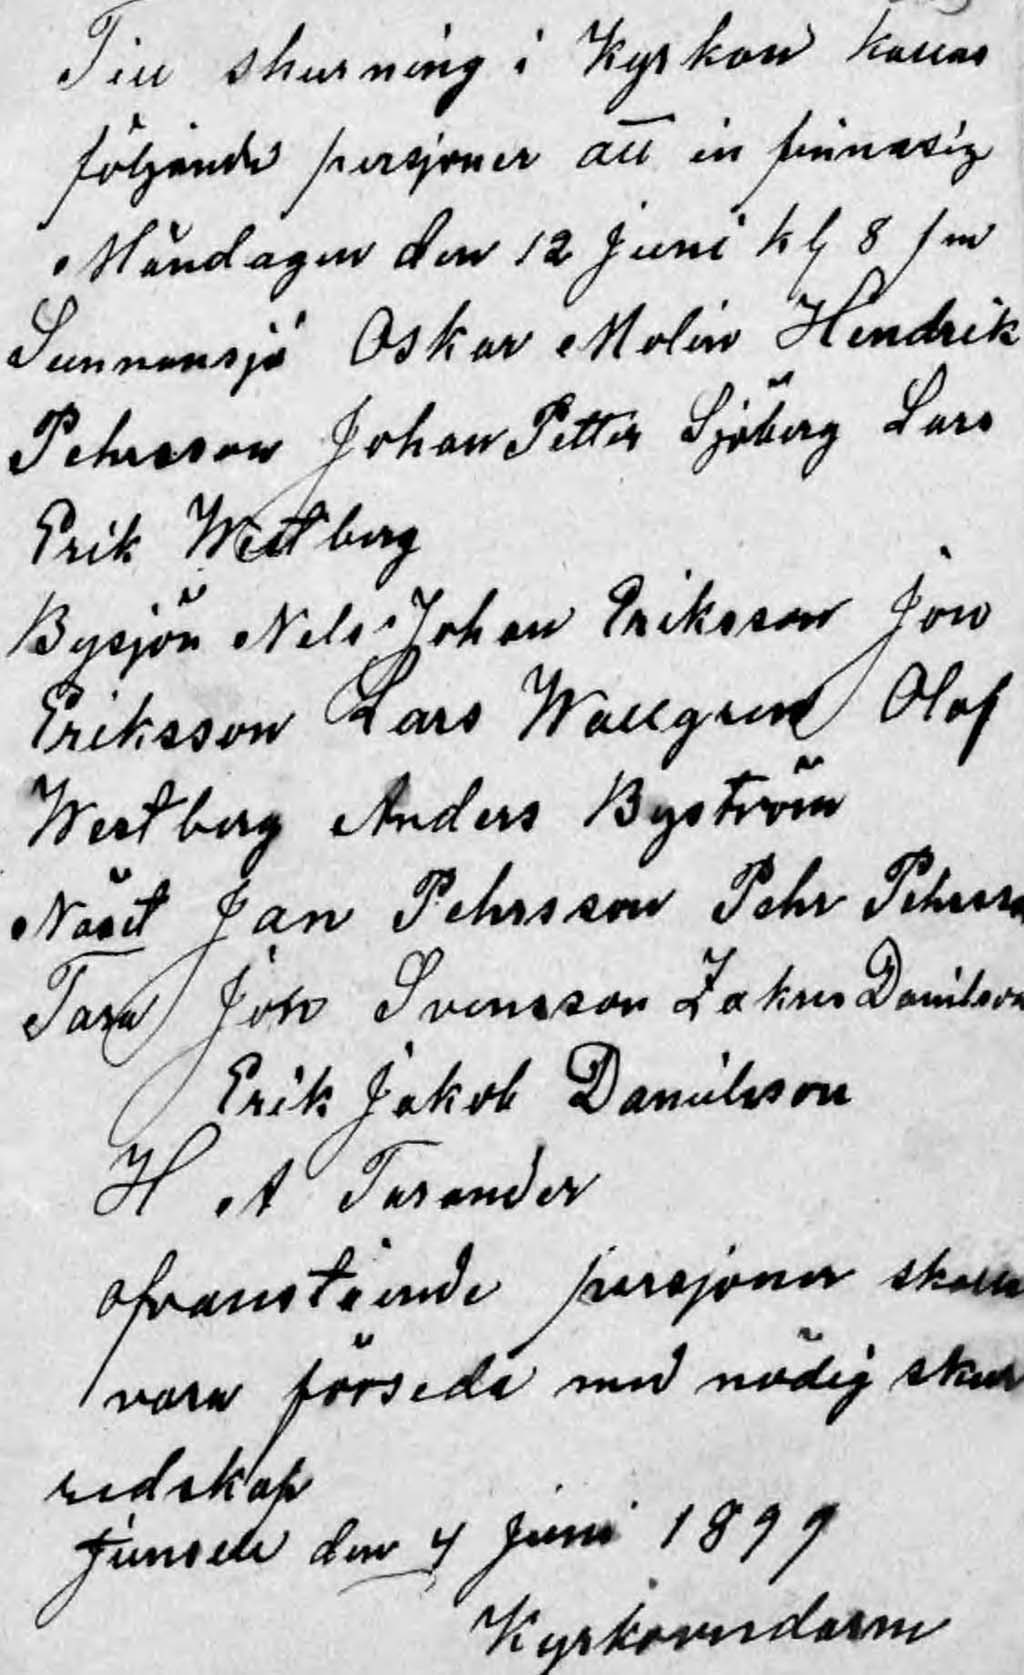 Till skurning i Kyrkan kallas
följande persjoner att in finna sig
Måndagen den 12 Juni kl 8 fm
Sunnansjö Oskar Molin Hendrik
Pehrsson Johan Petter Sjöberg Lars
Erik Westberg
Bysjön Nels Johan Eriksson Jon
Eriksson Lars Wallgren Olof
Westberg Anders Byström
Näset Jan Pehrsson Pehr Pehrsson
Tara Jon Svensson Zakris Danilsson
Erik Jakob Danielsson
H A Tarander
ofvanstående persjoner skalla
vara försedda med nödig skur
redskap
den 4 Juni 1899
Kyrkovärdarne